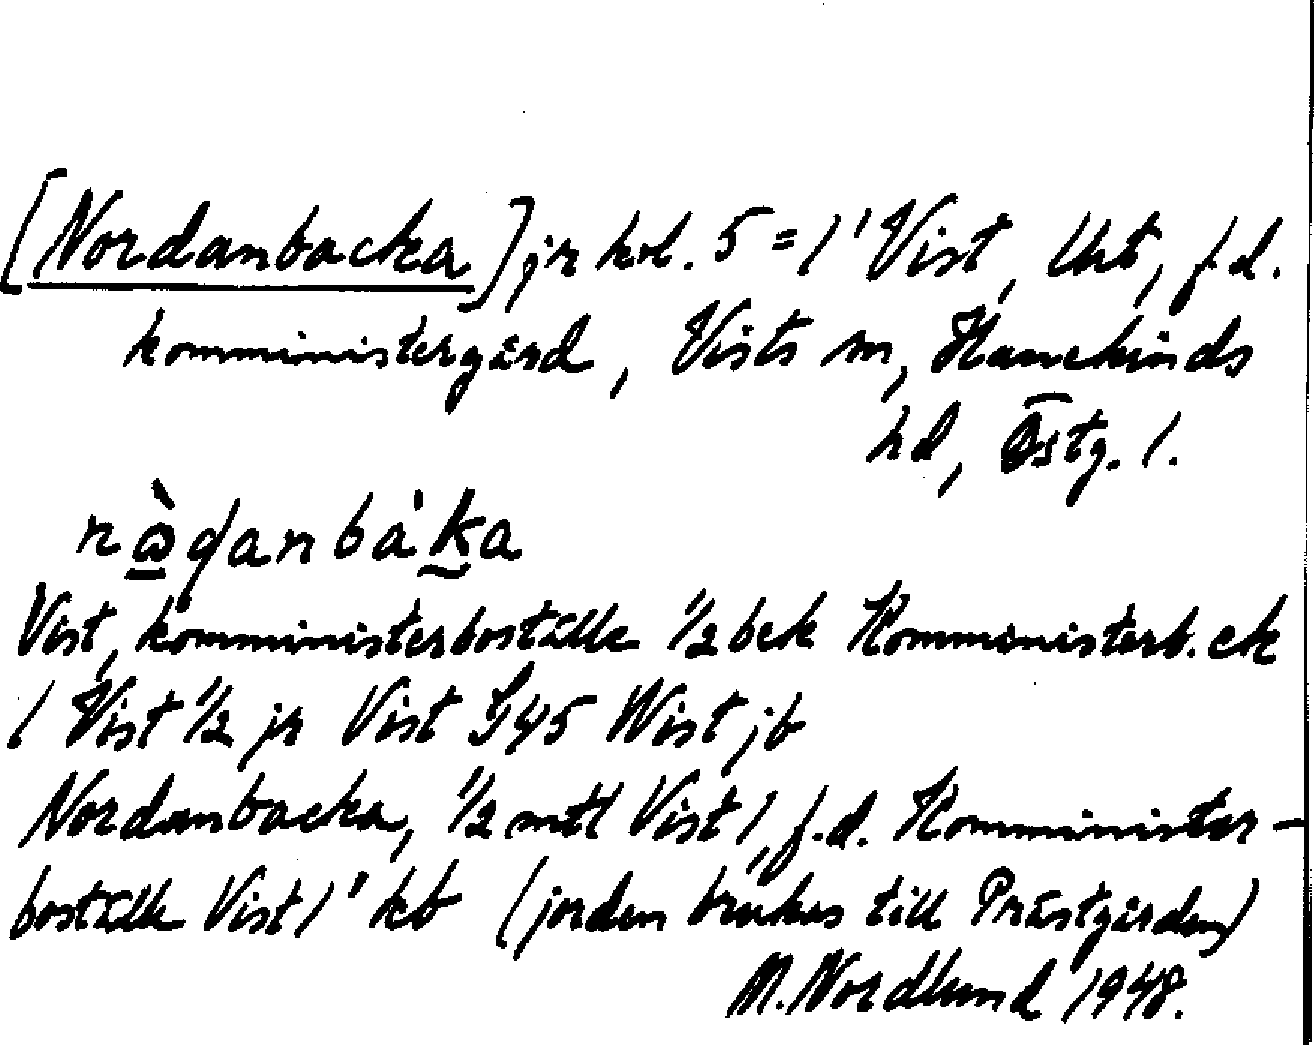 [Nordanbacka] jr kol. 5 = 1¹ Vist, Urt, f.d.
komministergård, Vists sn, Hanekinds
hd, Östg. l.
Vist, komministerboställe 1/2 bek Komministerb. ek
1 Vist 1/2 jr Vist G45 Wist jb
Nordanbacka, 1/2 mtl Vist 1, f.d. Komminister-
boställe Vist 1¹ kb (jorden brukas till Prästgården)
M. Nordlund 1948.